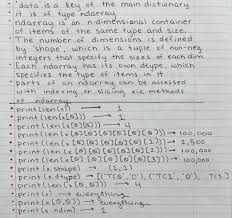 • 'data is a key of the main dictionary
it is a type of ndarray
ndarray is an n-dimensional container
of items of the same type and size.
The number of dimensions is defined
by 'shape', which is a tuple of non-neg
integers that specify the sizes of each dim
Each ndarray has its own dtype, which
specifies the type of items in it
parts of an ndarray can be accessed
with indexing or slicing via methods
of ndarray.
• print(len(x)) → 1
• print(len(x[0])) → 1
• print(len(x[0][0])) → 4
• print(len(x[0][0][0][0][0])) → 100,000
• print(len(x[0][0][0][0][1])) → 2,500
• print(len(x[0][0][0][0][2])) → 100,000
• print(len(x[0][0][0][0][3])) → 100,000
• print(x.shape) → (1,1)
• print(x.dtype) → [('TC0', 'O'), ('TC1', 'O'),
• print(len(x[0,0])) → 4
• print(x) → everything
• print(x[0,0]) → everything
• x.ndim → 2